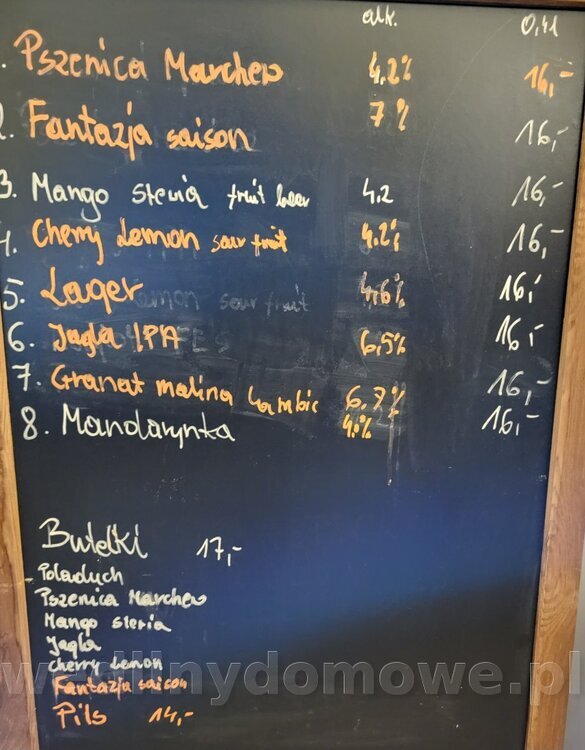 alk. 0,4l
. Pszenica Marchew 4,2% 16,-
2. Fantazja saison 7% 16,-
3. Mango stevia fruit beer 4,2 16,-
4. Cherry Lemon sour fruit 4,2% 16,-
5. Lager 4,6% 16,-
6. Jagla IPA 6,5% 16,-
7. Granat malina Lambic 6,7% 16,-
8. Mandarynka 16,-
Butelki 17,-
Pszenica Marchew
Mango stevia
Jagla
cherry lemon
Fantazja saison
Pils 14,-
wedlinydomowe.pl